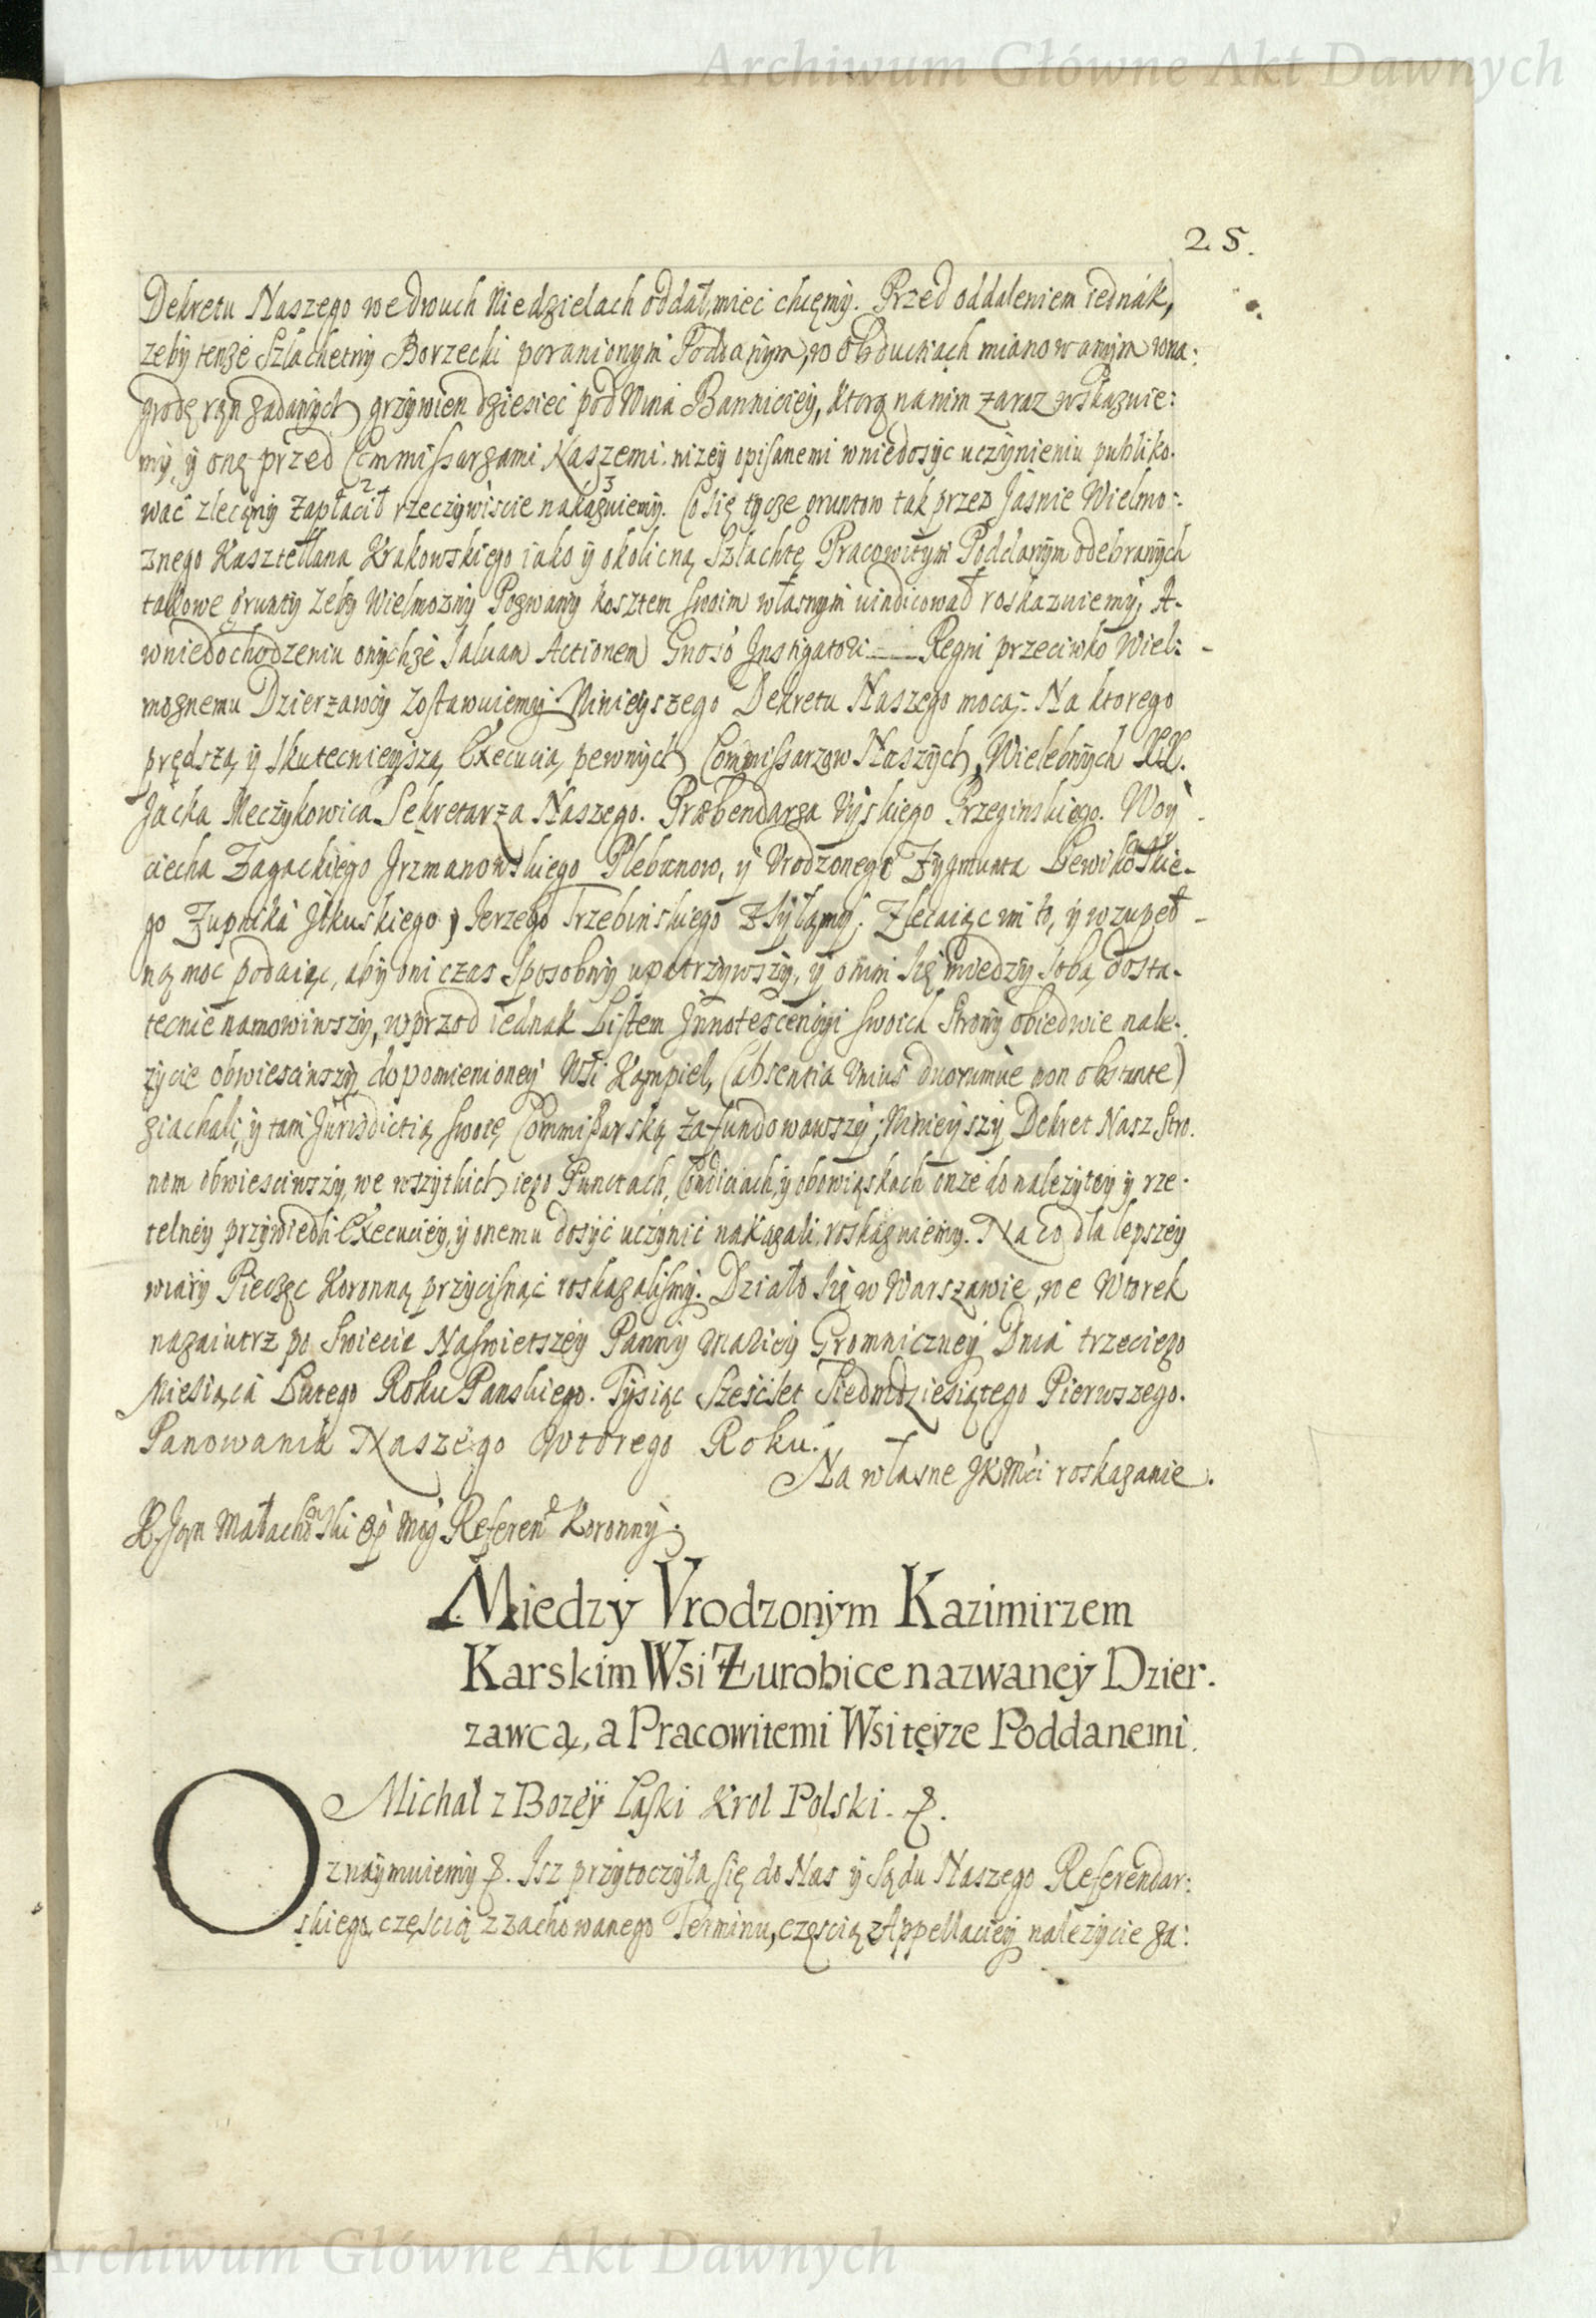 Archiwum Główne Akt Dawnych
25.
Dekretu Naszego we dwuch Niedzielach oddał, miec chcęmy. Przed oddaleniem iednák,
zeby tenze Szlachetny Borzecki poranionym Poddanym, w obdukciach mianowanym w na:
grodę ran zadanych grzywien dziesiec pod Winą Banniciey, ktorą na nim zaraz wskazuie:
my, y onę przed Commissarzami Naszemi nizey opisanemi w niedosyc uczynieniu publiko.
wać zlecamy zapłacił rzeczywiscie nakazuiemy. Co się tycze gruntow tak przez Jasnie Wielmo:
znego Kasztellana Krakowskiego iako y okoliczną Szlachtę Pracowitym Poddanym odebranych
takowe grunty zeby Wielmozny Pozwany kosztem swoim własnym uindicował roskazuiemy, A.
w niedochodzeniu onychze saluam Actionem Gnoso Instigatori Regni przeciwko Wiel:
moznemu Dzierzawcy zostawuiemy. Ninieyszego Dekretu Naszego mocą: Na ktorego
prędszą y skutecznieyszą Execucią pewnych Commissarzow Naszych, Wielebnych XX.
Jacka Meczykowica Sekretarza Naszego. Præbendarza Przeginskiego. Woy
ciecha Zagackiego Plebanow, y Vrodzonego Zygmunta
go Zupnika y Jerzego Trzebinskiego zsyłamy. Zlecaiąc im to, y w zupeł
ną moc podaiąc, aby oni czas sposobny upatrzywszy, y o nim się miedzy sobą dosta.
tecnie namowiwszy, wprzod iednak Listem Innotescencyi swoich Strony obiedwie nale.
zycie obwiesciwszy do pomienioney Wsi Kąmpiel, (absentia vnius duorumue non obstante)
ziachali, y tam Jurisdictią swoię Commissarską zafundowawszy; Ninieyszy Dekret Nasz Stro.
nom obwiesciwszy, we wszytkich iego Punctach, Condiciach, y obowiąskach onze do nalezytey y rze.
telney przywiedli Execuciey, y onemu dosyć uczynić nakazali, roskazuiemy. Na co dla lepszey
wiary Pieczęc Koronną przycisnąć roskazalismy. Działo się w Warszawie, we Wtorek
nazaiutrz po Swiecie Naswietszey Panny Mariey Gromniczney Dnia trzeciego
Miesiąca Lutego Roku Panskiego. Tysiąc Szescset Siedmdziesiątego Pierwszego.
Panowania Naszego Wtorego Roku.
Na własne JKMci roskazanie.
X. Jan Małachowski Referend Koronny.
Miedzy Vrodzonym Kazimirzem
Karskim Wsi Zurobice nazwaney Dzier.
zawcą, a Pracowitemi Wsi teyze Poddanemi.
Michał z Bozey Łaski Krol Polski. &.
Oznaymuiemy &. Isz przytoczyła się do Nas y Sądu Naszego Referendar:
skiego, częścią z zachowanego Terminu, częscią z Appellaciey nalezycie za:
Archiwum Główne Akt Dawnych